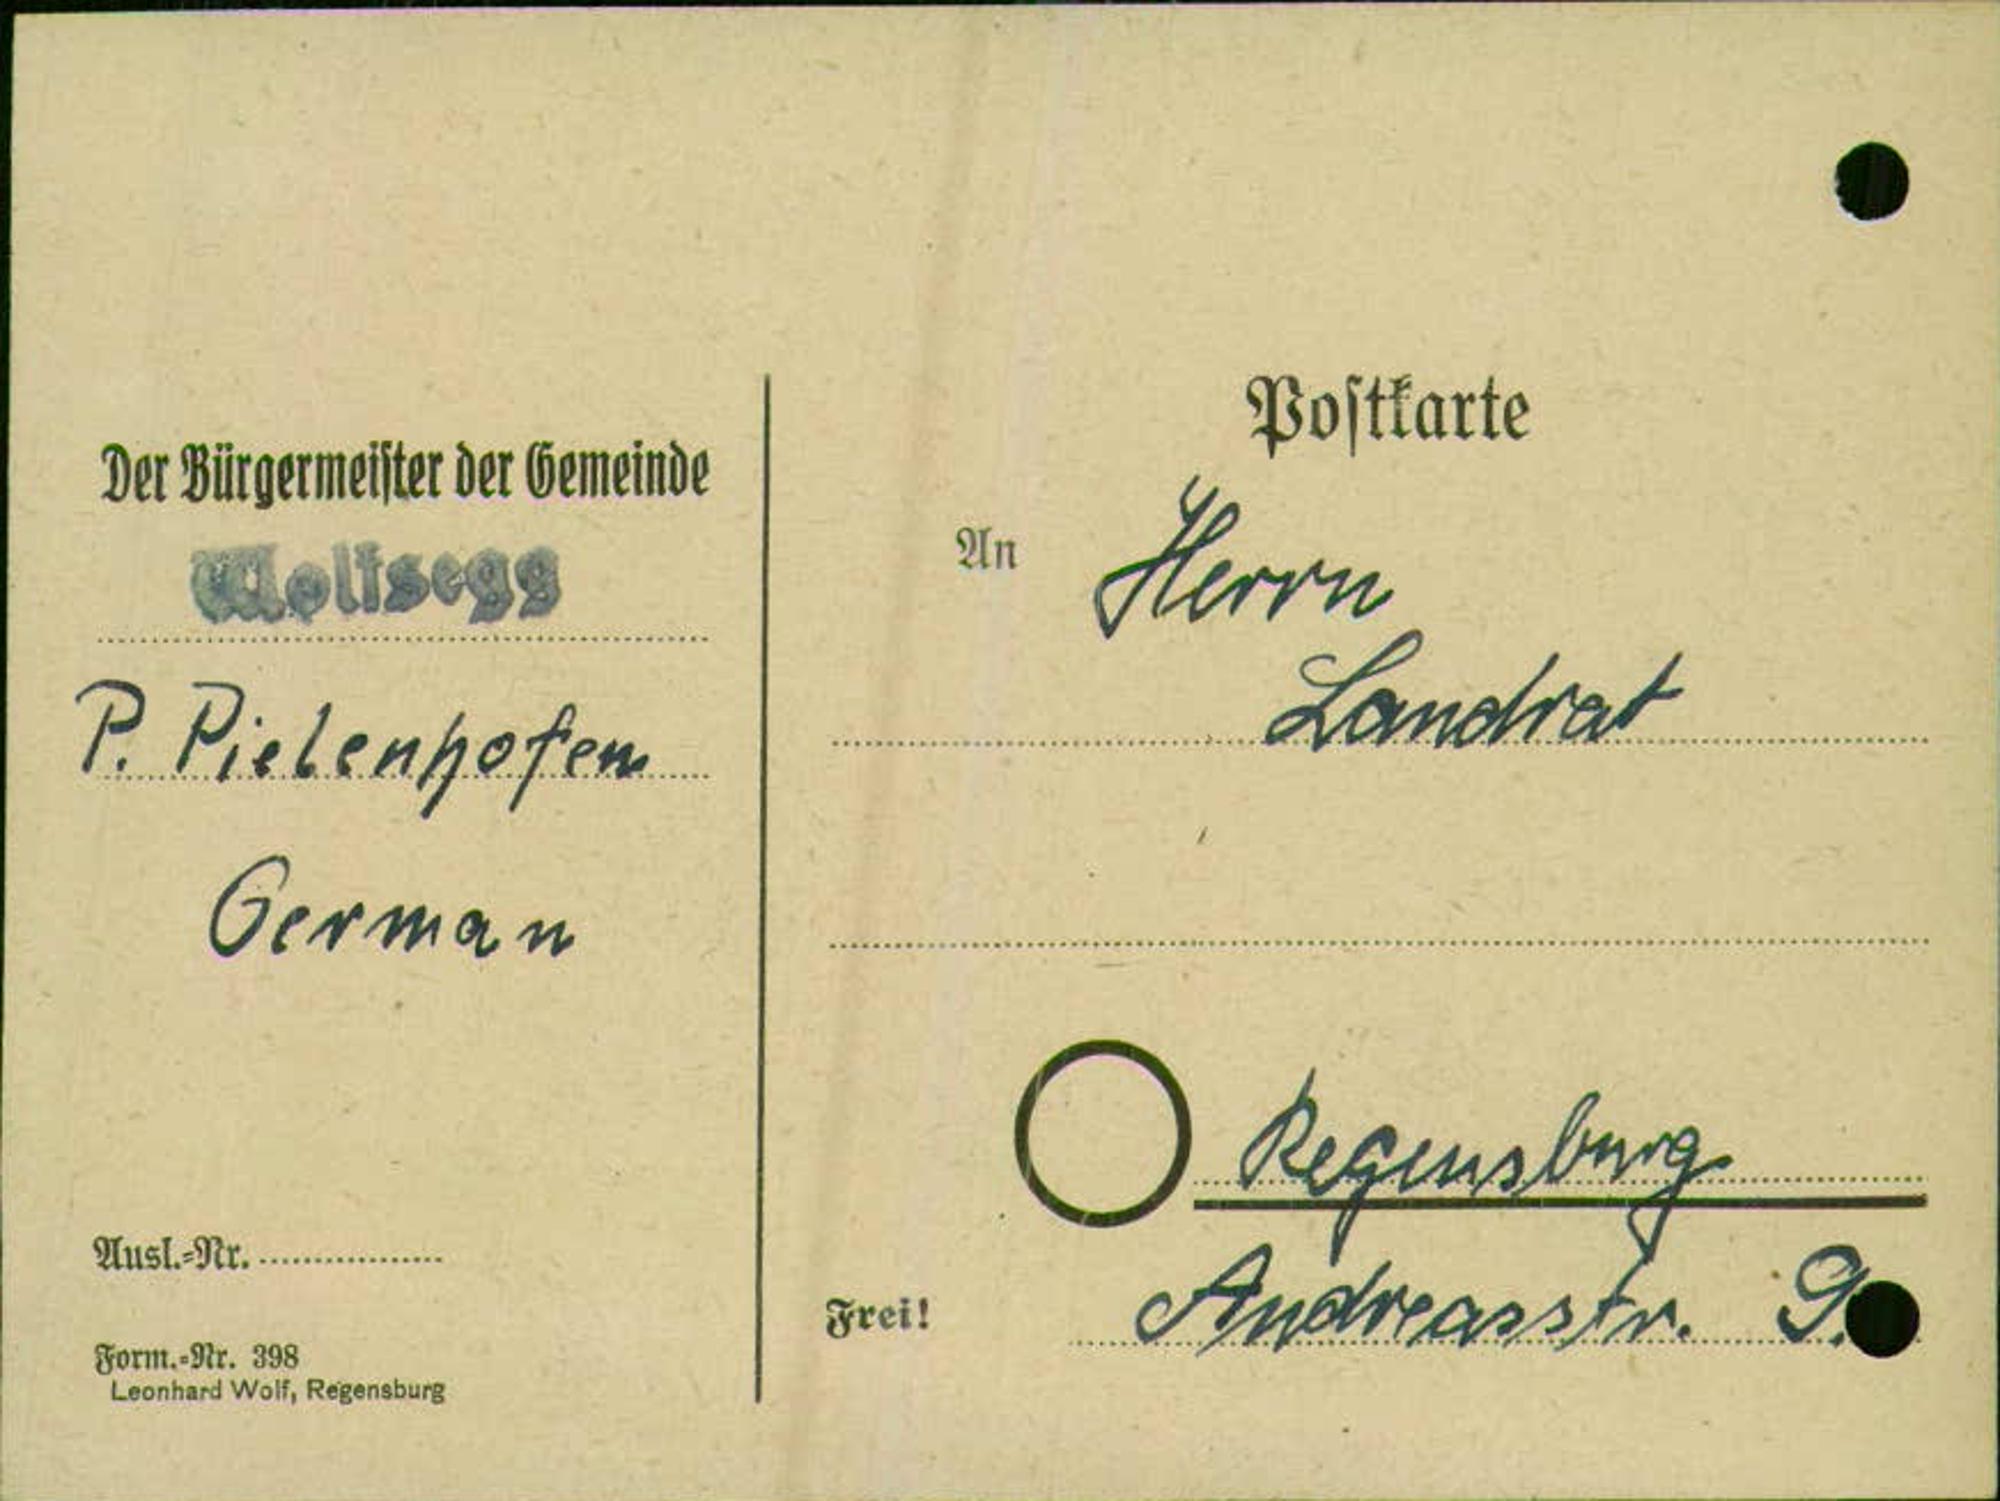 Der Bürgermeister der Gemeinde
Wolfsegg
P. Pielenhofen
German
Ausl.-Nr.
Form.-Nr. 398
Leonhard Wolf, Regensburg
Postkarte
An Herrn
Landrat
Regensburg
Frei! Andreasstr. 9.